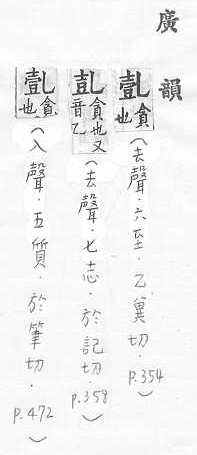 廣韻
亄貪也(去聲.六至.乙冀切.P.354)
亄貪也又音乙(去聲.七志.於記切.P.358)
亄貪也(入聲.五質.於筆切.P.472)